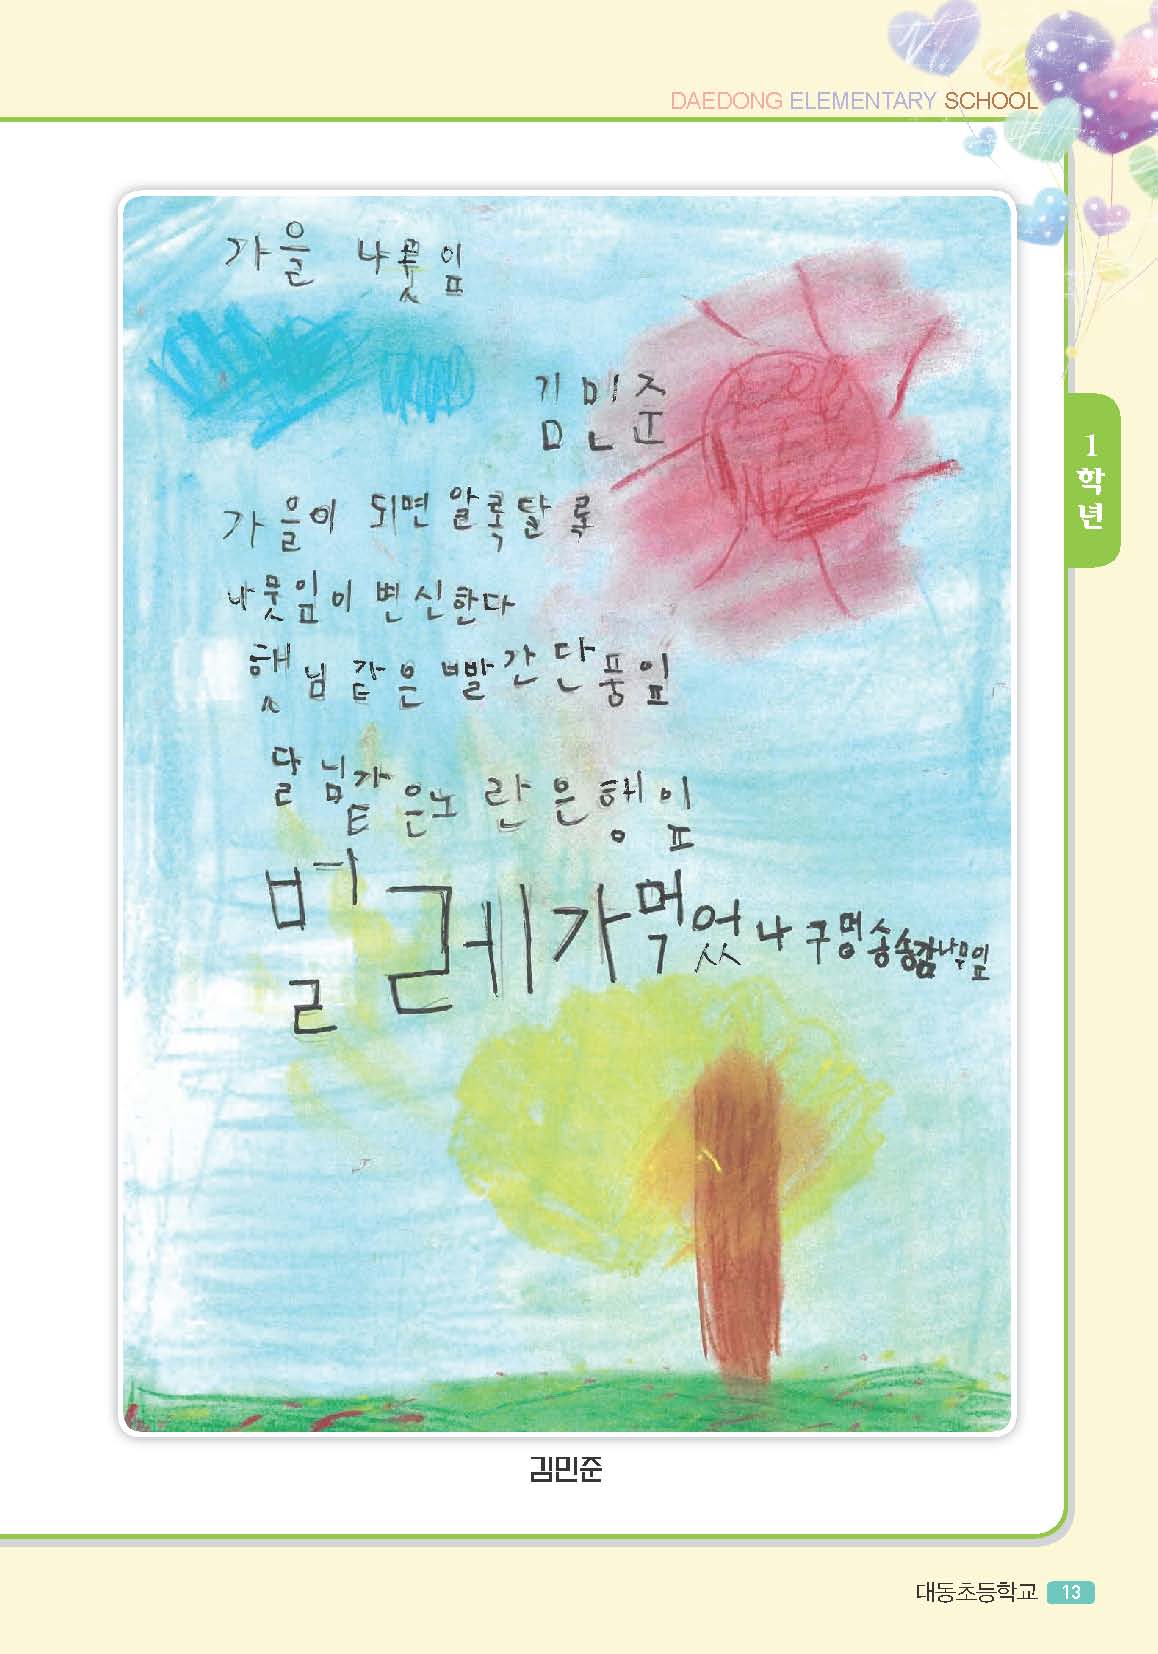 DAEDONG ELEMENTARY SCHOOL
가을 나뭇잎
김민준
가을이 되면 알록달록
나뭇잎이 변신한다
햇님 같은 빨간 단풍잎
달님같은 노란 은행잎
벌레가 먹었나 구멍 송송 감나무잎
김민준
1학년
대동초등학교 13